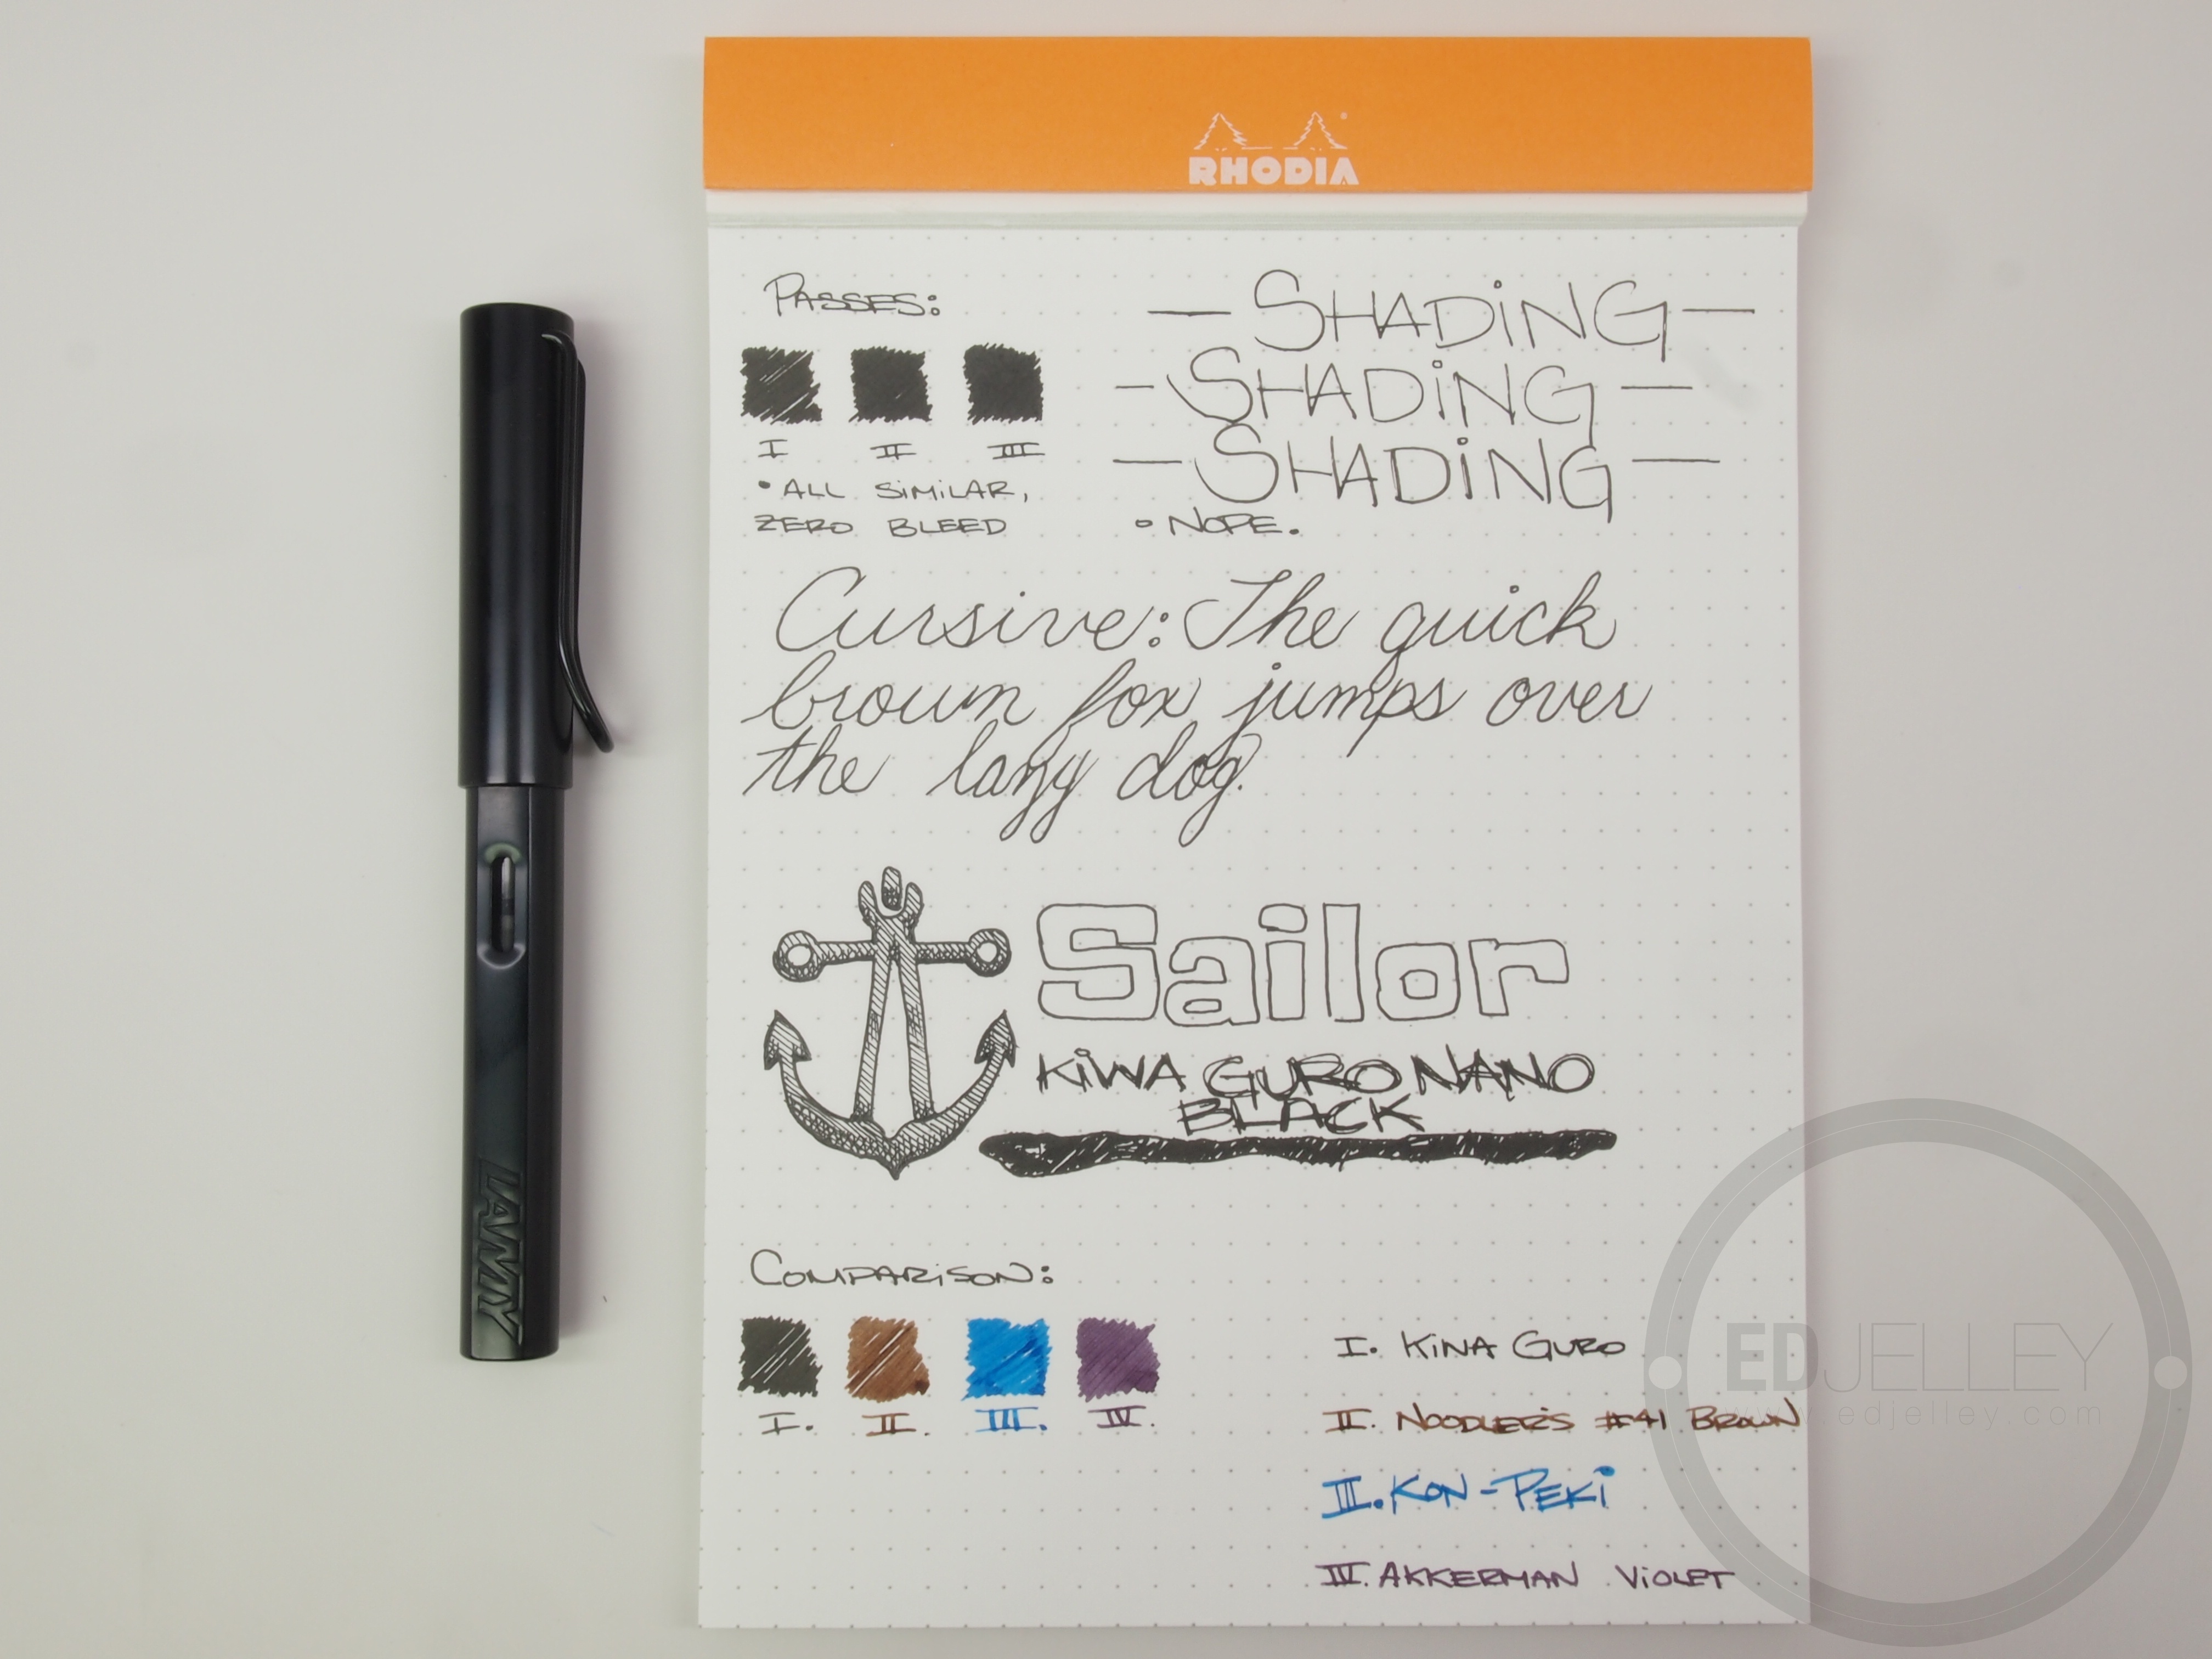 RHODIA
PASSES:
I II III
• ALL SiMiLAR,
ZERO BLEED
— SHADiNG —
— SHADiNG —
— SHADiNG —
• NOPE.
Cursive: The quick
brown fox jumps over
the lazy dog.
Sailor
KiWA GURO NANO
BLACK
COMPARiSON:
I. II. III. IV.
I. KiNA GURO
II. NOODLER'S #41 BROWN
III. KON-PEKi
IV. AKKERMAN ViOLET
LAMY
EDJELLEY
www.edjelley.com